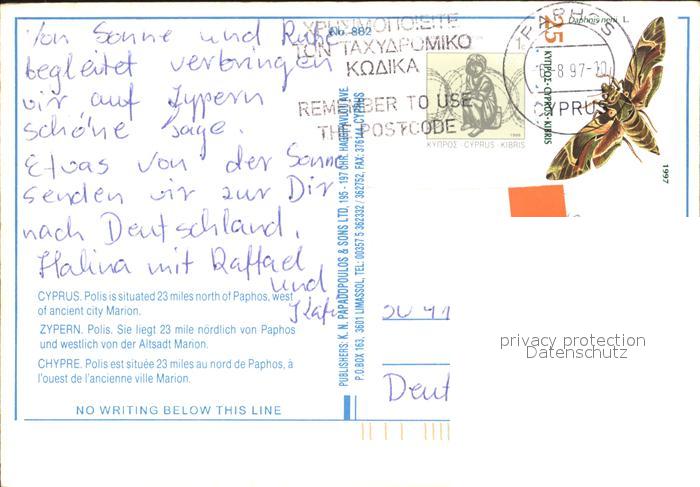 Von Sonne und Ruhe
begleitet verbringen
wir auf Zypern
schöne Tage.
Etwas von der Sonne
senden wir zur Dir
nach Deutschland.
Halina mit Raffael
und
CYPRUS. Polis is situated 23 miles north of Paphos, west
of ancient city Marion.
ZYPERN. Polis. Sie liegt 23 mile nördlich von Paphos
und westlich von der Altsadt Marion.
CHYPRE. Polis est située 23 miles au nord de Paphos, à
l'ouest de l'ancienne ville Marion.
NO WRITING BELOW THIS LINE
No. 882
ΧΡΗΣΙΜΟΠΟΙΕΙΤΕ
ΤΟΝ ΤΑΧΥΔΡΟΜΙΚΟ
ΚΩΔΙΚΑ
REMEMBER TO USE
THE POSTCODE
PUBLISHERS: K. N. PAPADOPOULOS & SONS LTD, 195 - 197 CHR. HADJIPAVLOU AVE.
P.O.BOX 163, 3601 LIMASSOL, TEL: 00357 5 362332 / 362752, FAX: 376144, CYPRUS
1c
1996
ΚΥΠΡΟΣ · CYPRUS · KIBRIS
PAPHOS
8 97-10
CYPRUS
Daphnis nerii L.
25
ΚΥΠΡΟΣ-CYPRUS-KIBRIS
1997
Deut
privacy protection
Datenschutz